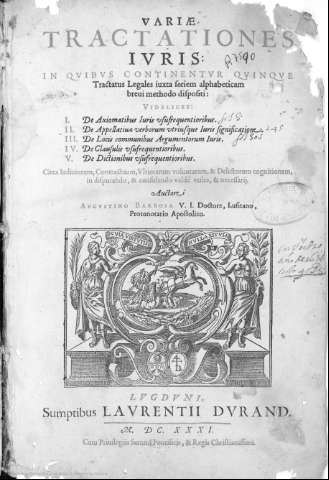 VARIÆ
TRACTATIONES
IVRIS:
IN QVIBVS CONTINENTVR QVINQVE
Tractatus Legales iuxta seriem alphabeticam
breui methodo dispositi:
VIDELICET:
I. De Axiomatibus Iuris vsufrequentioribus.
II. De Appellatiua verborum vtriusque Iuris significatione.
III. De Locis communibus Argumentorum Iuris.
IV. De Clausulis vsufrequentioribus.
V. De Dictionibus vsufrequentioribus.
Circa Iudiciorum, Contractuum, Vltimarum voluntatum, & Delictorum cognitionem,
in disputando, & consulendo valdè vtiles, & necessarij.
Auctore
AVGVSTINO BARBOSA V. I. Doctore, Lusitano,
Protonotario Apostolico.
LVGDVNI,
Sumptibus LAVRENTII DVRAND.
M. DC. XXXI.
Cum Priuilegiis Summi Pontificis, & Regis Christianissimi.